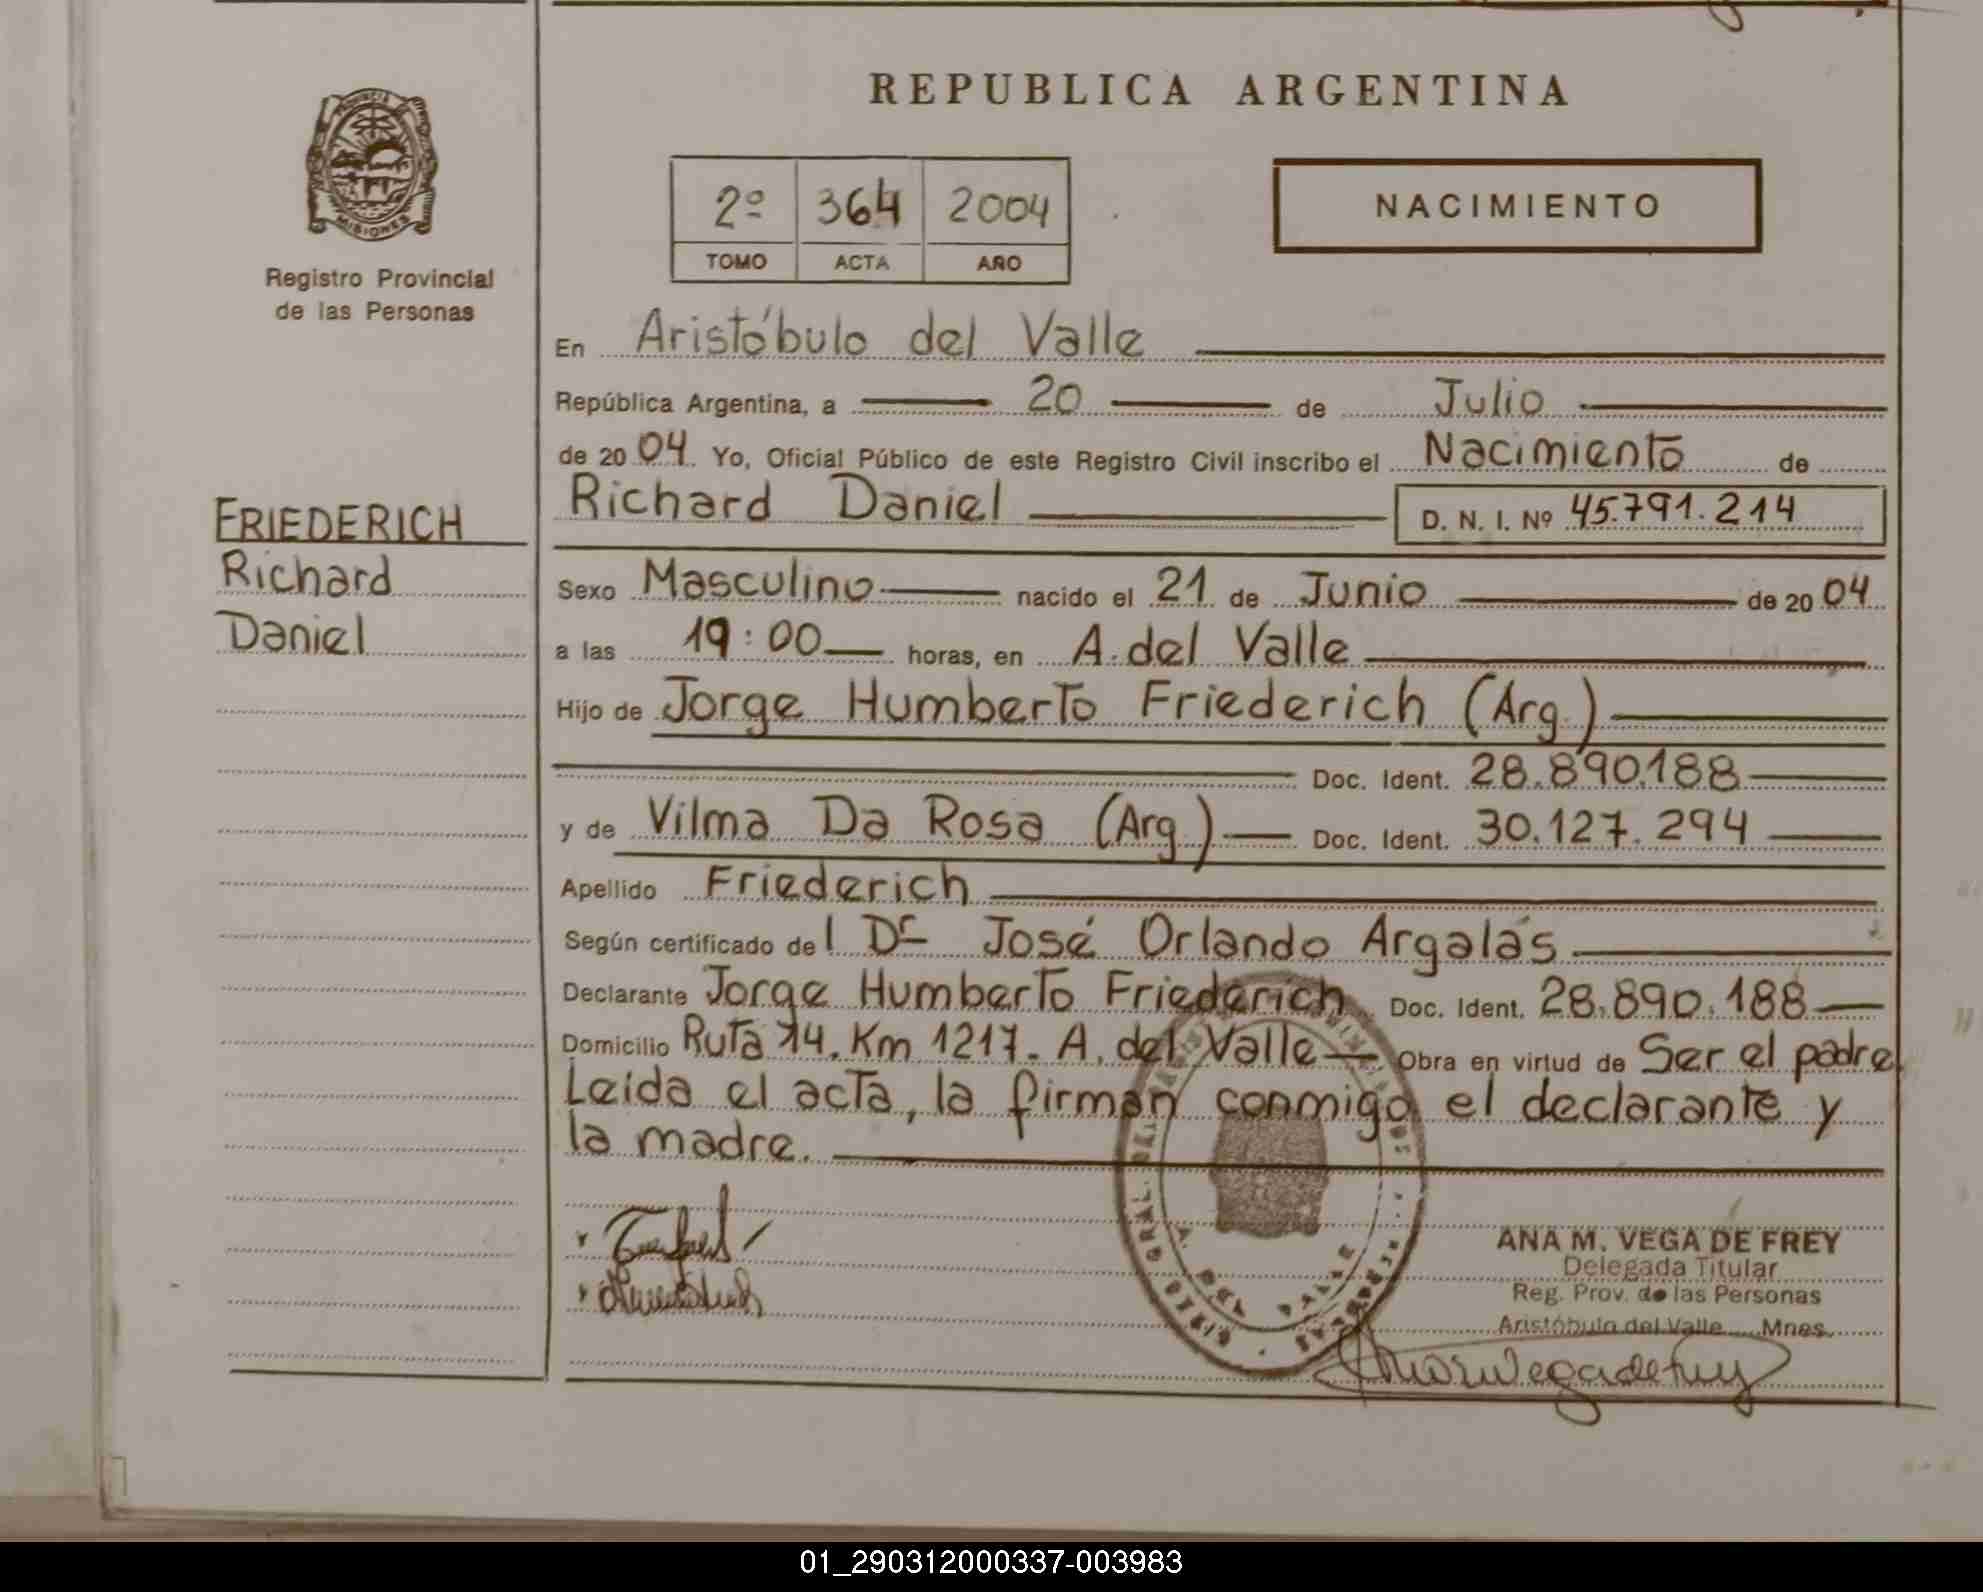 REPUBLICA ARGENTINA
PROVINCIA
MISIONES
Registro Provincial
de las Personas
2º 364 2004
TOMO ACTA AÑO
NACIMIENTO
En Aristóbulo del Valle
República Argentina, a 20 de Julio
de 20 04 Yo, Oficial Público de este Registro Civil inscribo el Nacimiento de
FRIEDERICH
Richard
Daniel
Richard Daniel D. N. I. Nº 45.791.214
Sexo Masculino nacido el 21 de Junio de 20 04
a las 19:00 horas, en A. del Valle
Hijo de Jorge Humberto Friederich (Arg.)
Doc. Ident. 28.890.188
y de Vilma Da Rosa (Arg.) Doc. Ident. 30.127.294
Apellido Friederich
Según certificado del Dr José Orlando Argalás
Declarante Jorge Humberto Friederich Doc. Ident. 28.890.188
Domicilio Ruta 14. Km 1217. A. del Valle Obra en virtud de Ser el padre
Leida el acta, la firman conmigo el declarante y
la madre.
A. DEL VALLE
ANA M. VEGA DE FREY
Delegada Titular
Reg. Prov. de las Personas
Aristóbulo del Valle Mnes.
01_290312000337-003983